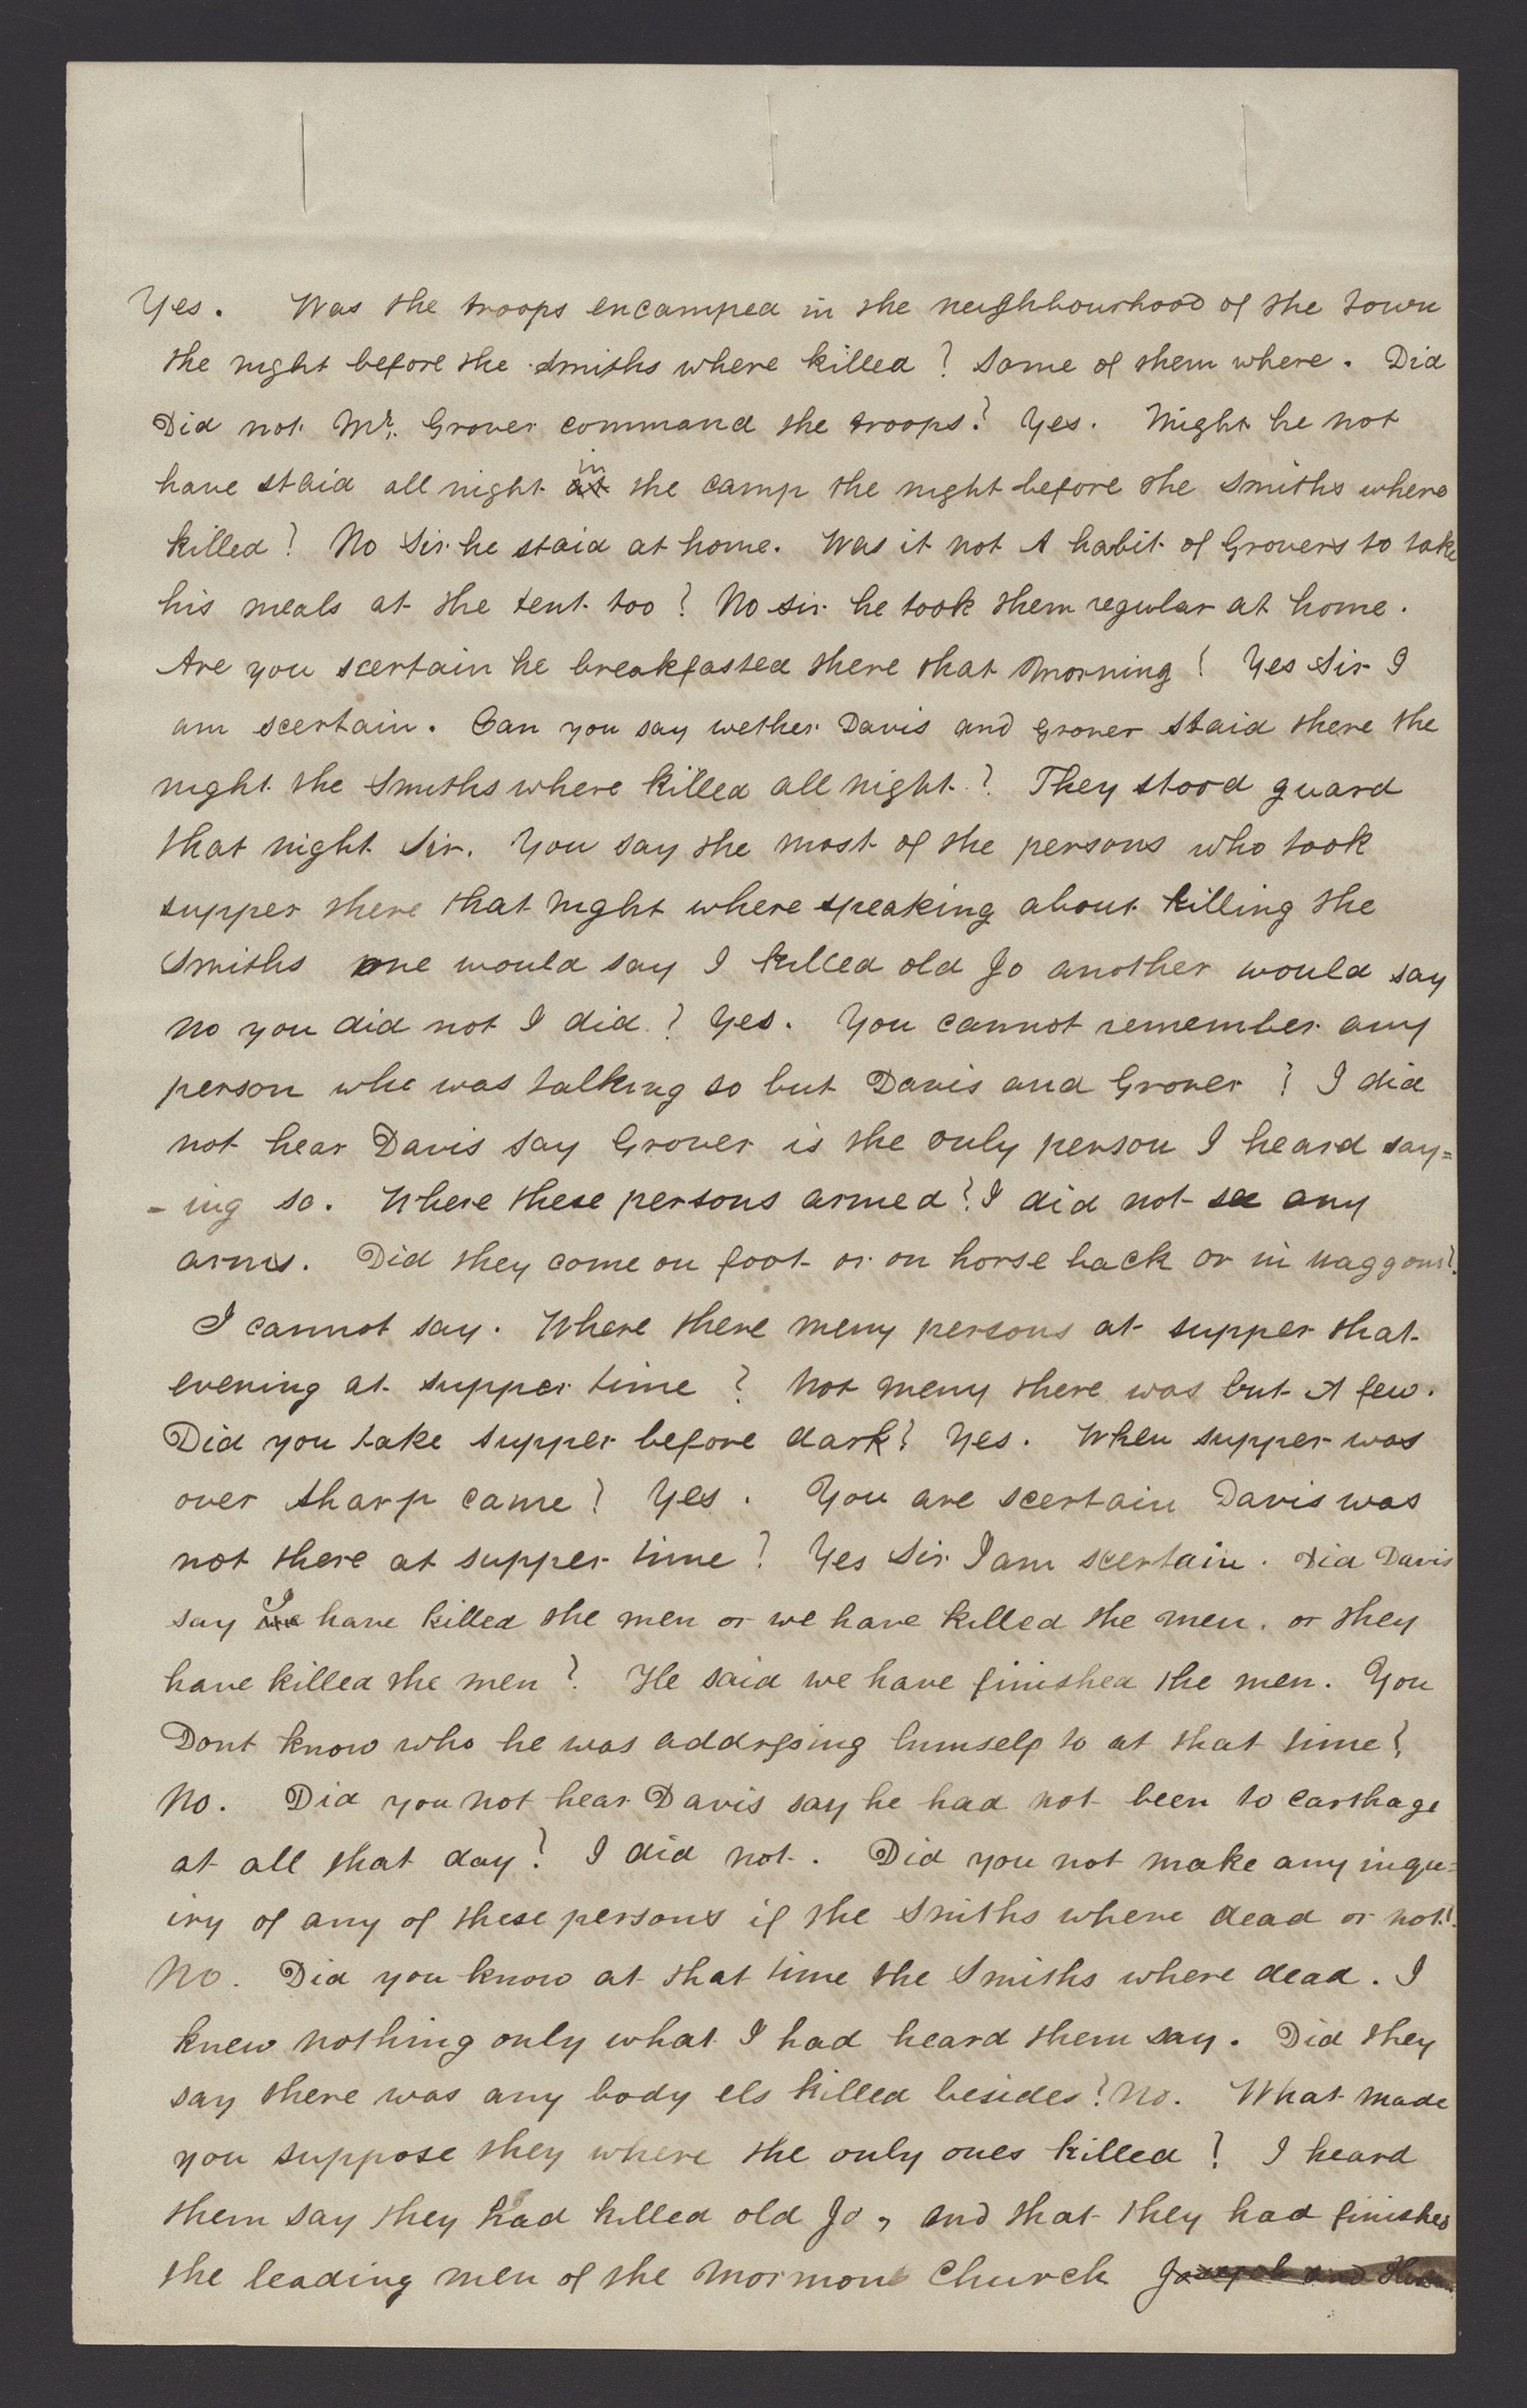 Yes. Was the troops encamped in the neighbourhood of the town
the night before the Smiths where killed? Some of them where. Did
Did not Mr. Grover command the troops? Yes. Might he not
have staid all night at in the camp the night before the Smiths where
killed? No Sir he staid at home. Was it not A habit of Grovers to take
his meals at the tent too? No sir he took them regular at home.
Are you scertain he breakfasted there that morning? Yes Sir I
am scertain. Can you say wether Davis and Grover staid there the
night the Smiths where killed all night? They stood guard
that night Sir. You say the most of the persons who took
supper there that night where speaking about killing the
Smiths one would say I killed old Jo another would say
No you did not I did? Yes. You cannot remember any
person who was talking so but Davis and Grover? I did
not hear Davis say Grover is the only person I heard say=
-ing so. Where these persons armed? I did not see any
arms. Did they come on foot or on horse back or in waggons?
I cannot say. Where there meny persons at supper that
evening at supper time? Not meny there was but A few.
Did you take supper before dark? Yes. When supper was
over Sharp came? Yes. You are scertain Davis was
not there at supper time? Yes Sir I am scertain. Did Davis
say I have killed the men or we have killed the men. or they
have killed the men? He said we have finished the men. You
Dont know who he was addrssing himself to at that time?
No. Did you not hear Davis say he had not been to Carthage
at all that day? I did not. Did you not make any inqu=
iry of any of these persons if the Smiths where dead or not?
No. Did you know at that time the Smiths where dead. I
knew nothing only what I had heard them say. Did they
say there was any body els killed besides? No. What made
you suppose they where the only ones killed? I heard
them say they had killed old Jo, and that they had finished
the leading men of the Mormon Church Joseph and